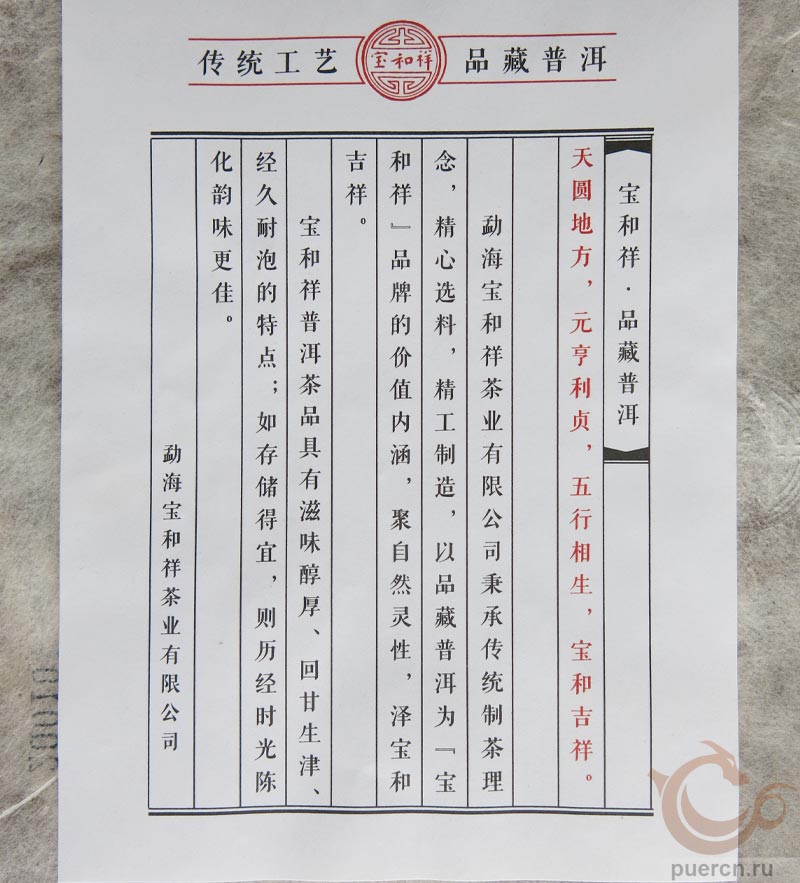 传统工艺 宝和祥 品藏普洱
宝和祥·品藏普洱
天圆地方，元亨利贞，五行相生，宝和吉祥。
勐海宝和祥茶业有限公司秉承传统制茶理
念，精心选料，精工制造，以品藏普洱为『宝
和祥』品牌的价值内涵，聚自然灵性，泽宝和
吉祥。
宝和祥普洱茶品具有滋味醇厚、回甘生津、
经久耐泡的特点；如存储得宜，则历经时光陈
化韵味更佳。
勐海宝和祥茶业有限公司
puercn.ru